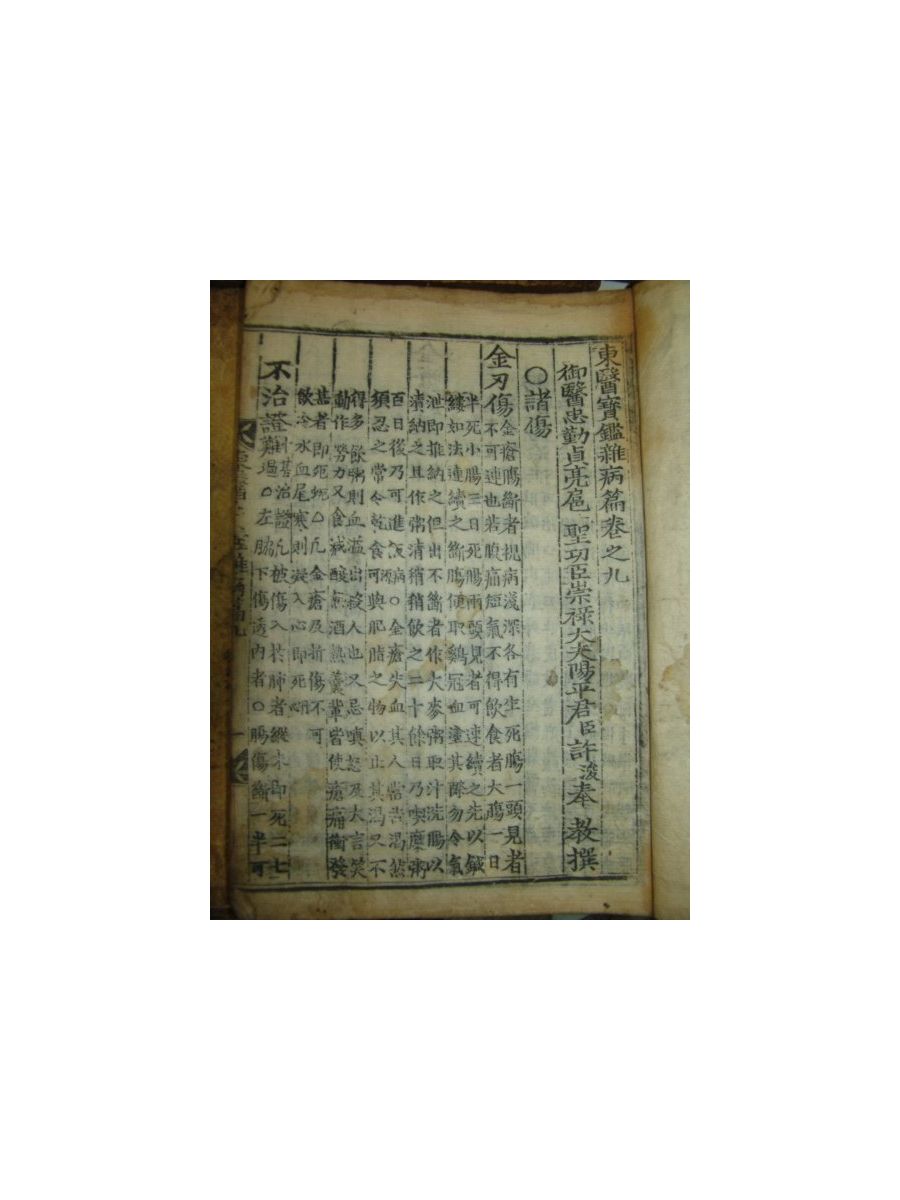 東醫寶鑑雜病篇卷之九
御醫忠勤貞亮扈 聖功臣崇祿大夫陽平君臣許浚奉 教撰
○諸傷
金刃傷
金瘡膓斷者視病淺深各有生死膓一頭見者
不可連也若腹痛短氣不得飮食者大膓一日
半死小膓三日死膓兩頭見者可速續之先以鍼
縷如法連續之斷膓便取鷄冠血塗其際勿令氣
泄即推納之但出不斷者作大麥粥取汁洗膓以
漬納之且作粥淸稍稍飮之二十餘日乃喫糜粥
百日後乃可進飯病源○金瘡失血其人當苦渴然
須忍之常令乾食可與肥脂之物以止其渴又不
得多飮粥則血溢出殺人也又忌嗔怒及大言笑
動作勞力又食醎酸 酒熱羹軰皆使瘡痛衝發
甚者即死 △凡金瘡及折傷不可
飮冷水血 寒則凝入心即死
不治證
凡被傷入於肺者縱未即死二七
難過○左脇下傷透內者○膓傷斷一半可